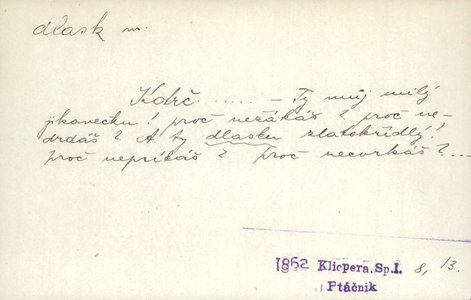 dlask m.
Kdrč. ..... – Ty můj milý
pkavečku! proč nežákáš? proč ne-
drdáš? A ty dlasku zlatokřídlý!
proč nepříkáš? Proč necvrkáš?...
1862 Klicpera, Sp. I. 8, 13.
Ptáčník